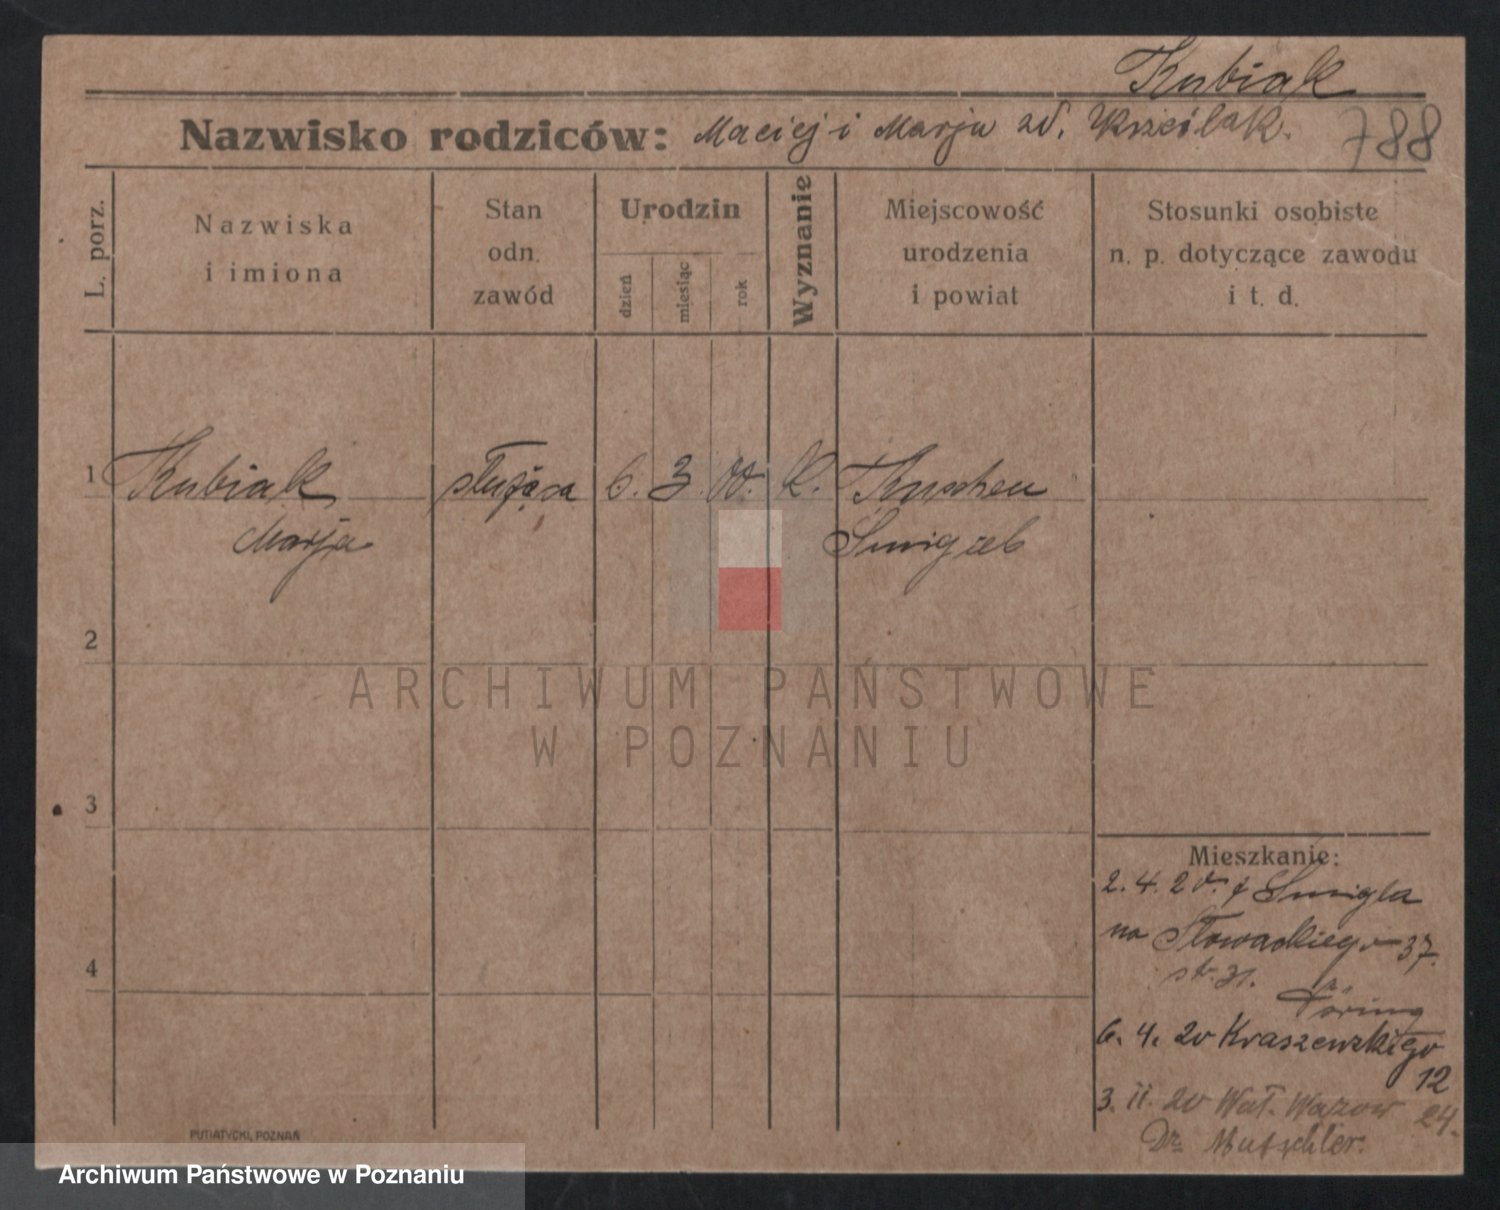 Kubiak
Nazwisko rodziców: Maciej i Marja zd. 788
L. porz.
Nazwiska
i imiona
Stan
odn.
zawód
Urodzin
dzień
miesiąc
rok
Wyznanie
Miejscowość
urodzenia
i powiat
Stosunki osobiste
n. p. dotyczące zawodu
i t. d.
1 Kubiak służąca 6. 3. 00. k. Kuschen
Marja Smigrel
2
3
4
Mieszkanie:
2. 4. 20. Smigla
na Słowackiego 37.
Döring
6. 4. 20 Kraszewskiego
12
3. 11. 20 Wał. Wazow 24.
Dr. Mutschler.
PUTIATYCKI, POZNAŃ
ARCHIWUM PAŃSTWOWE
W POZNANIU
Archiwum Państwowe w Poznaniu